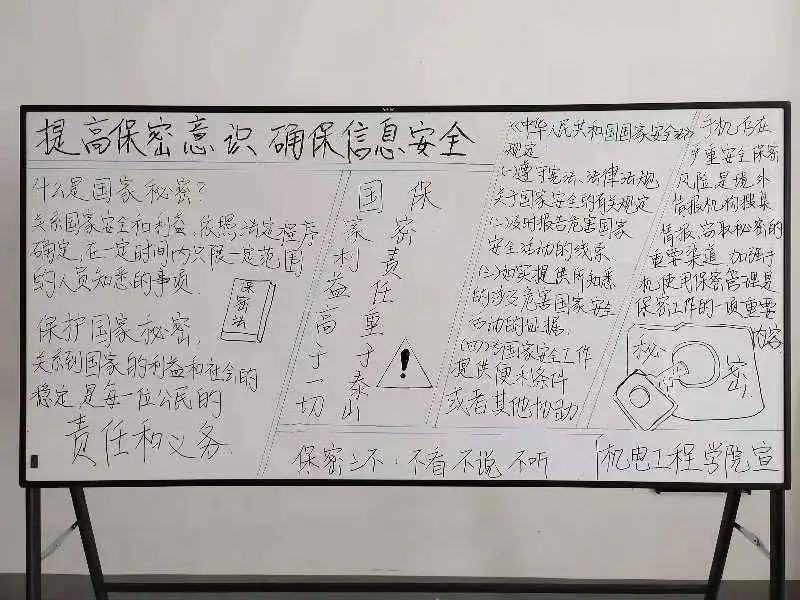 提高保密意识 确保信息安全
什么是国家秘密?
关系国家安全和利益,依照法定程序
确定,在一定时间内只限一定范围
的人员知悉的事项.
保密法
保护国家秘密,
关系到国家的利益和社会的
稳定,是每一位公民的
责任和义务.
保密责任重于泰山
国家利益高于一切
《中华人民共和国国家安全法》
规定
(一)遵守宪法、法律法规
关于国家安全的有关规定
(二)及时报告危害国家
安全活动的线索
(三)如实提供所知悉
的涉及危害国家安全
活动的证据.
(四)为国家安全工作
提供便利条件
或者其他协助
手机存在
严重安全保密
风险,是境外
情报机构搜集
情报、窃取秘密的
重要渠道 加强手
机使用保密管理是
保密工作的一项重要
内容
秘密
保密三不:不看 不说 不听
机电工程学院宣